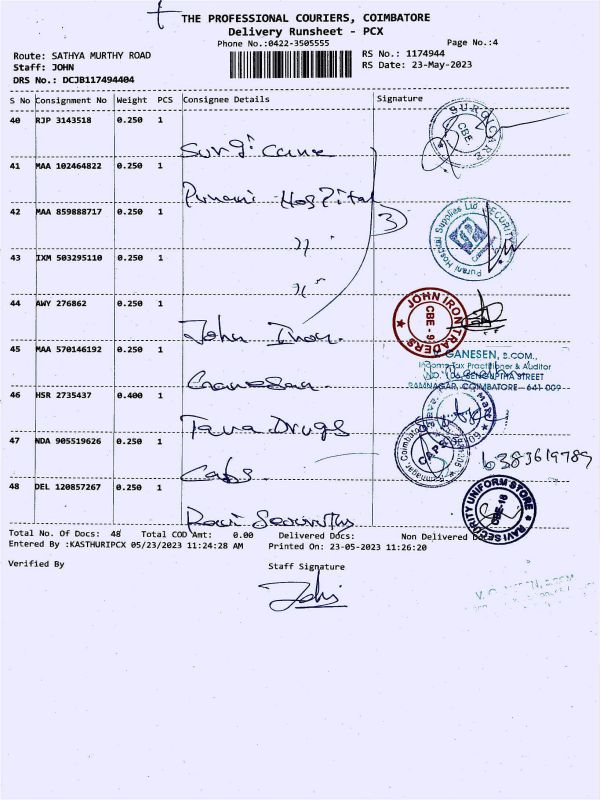 THE PROFESSIONAL COURIERS, COIMBATORE
Delivery Runsheet - PCX
Phone No.:0422-3505555
Page No.:4
Route: SATHYA MURTHY ROAD
RS No.: 1174944
Staff: JOHN
RS Date: 23-May-2023
DRS No.: DCJB117494404
S No Consignment No Weight PCS Consignee Details Signature
40 RJP 3143518 0.250 1
SURGICARE CBE
41 MAA 102464822 0.250 1
Purani Hospital
42 MAA 859888717 0.250 1
〃
3
Purani Hospital Supplies Ltd SECURITY
43 IXM 503295110 0.250 1
〃
44 AWY 276862 0.250 1
John Iron.
JOHN IRON TRADERS CBE - 9
45 MAA 570146192 0.250 1
Ganesan
GANESEN, B.COM.,
Income Tax Practitioner & Auditor
SENGUPTHA STREET
RAMNAGAR, COIMBATORE - 641 009
46 HSR 2735437 0.400 1
Tara Drugs
47 NDA 905519626 0.250 1
Caps
CAPS
6383619789
48 DEL 120857267 0.250 1
Ravi Security
RAVI SECURITY UNIFORM STORE CBE-18
Total No. Of Docs: 48 Total COD Amt: 0.00 Delivered Docs: Non Delivered Docs
Entered By :KASTHURIPCX 05/23/2023 11:24:28 AM Printed On: 23-05-2023 11:26:20
Verified By
Staff Signature